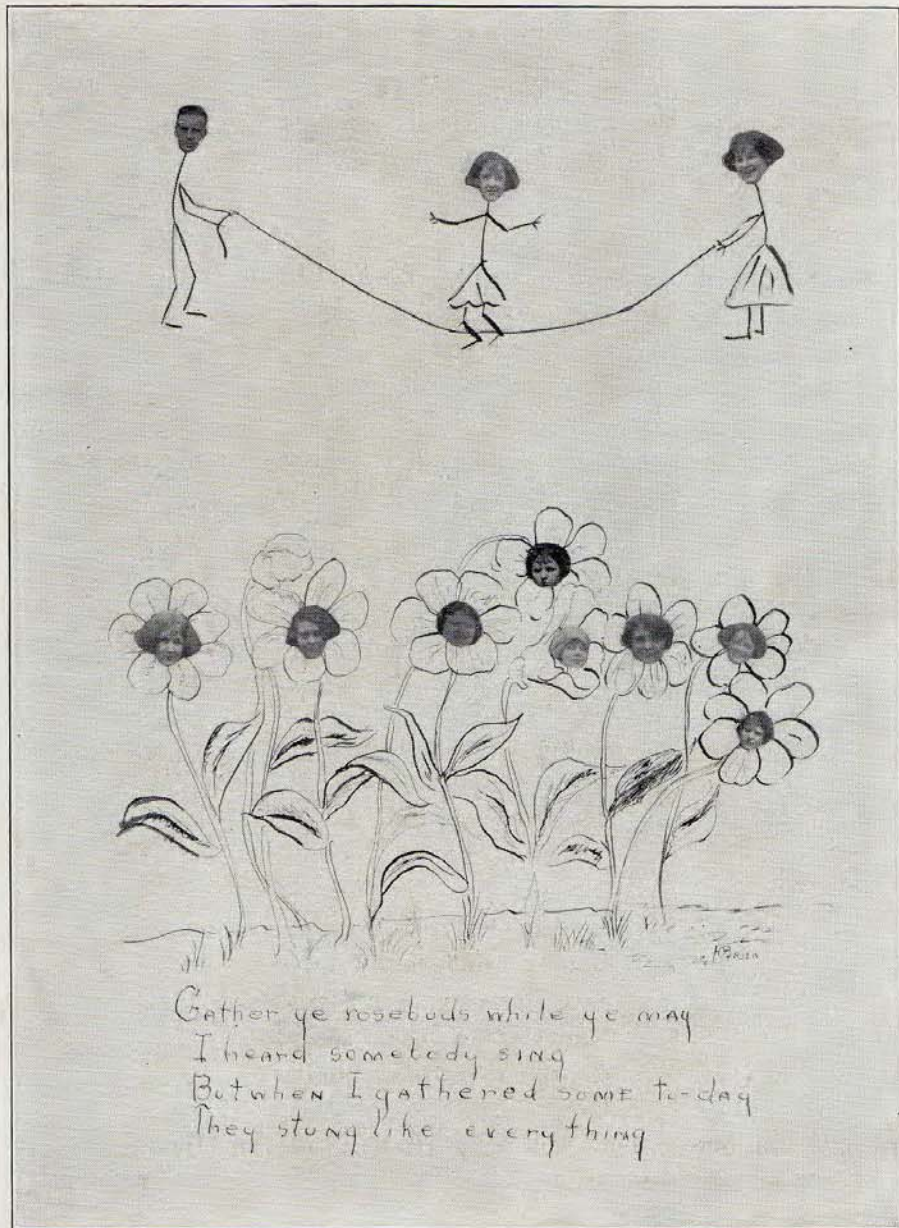 Gather ye rosebuds while ye may
I heard somebody sing
But when I gathered some to-day
They stung like every thing